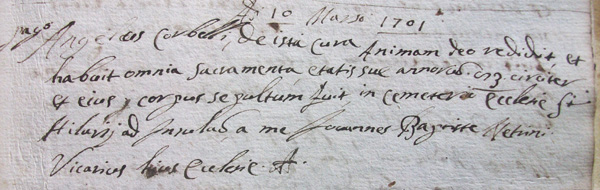 Adi 10 Marso 1701
pagò Angelus Corbelli, de istà cura Animam deo redidit, et
habuit omnia Sacramenta etatis sue annorũ circiter
et eius corpus sepultum fuit in cemeterio Ecclesie Sti
Hilarij ad a me Joannes Baptiste
Vicarius huius Ecclesie. A.